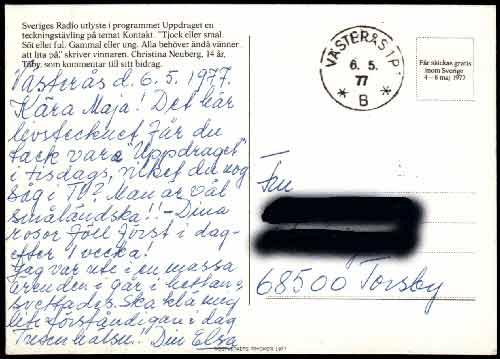 Sveriges Radio utlyste i programmet Uppdraget en
teckningstävling på temat Kontakt. "Tjock eller smal.
Söt eller ful. Gammal eller ung. Alla behöver ändå vänner
att lita på," skriver vinnaren. Christina Neuberg, 14 år,
Täby, som kommentar till sitt bidrag.
Västerås d. 6.5. 1977.
Kära Maja! Det här
livstecknet får du
tack vare "Uppdraget"
i tisdags, vilket du nog
såg i TV? Man är väl
småländska!! - Dina
rosor föll först i dag -
efter 1 vecka!
Jag var ute i en massa
ärenden i går i hettan,
svettades. Ska klä mig
litet förstånd. gån i dag
Tusen hälsn." Din Elsa
VÄSTERÅS 1P
6. 5.
77
* B *
Får skickas gratis
inom Sverige
4–8 maj 1977
Fru
68500 Torsby
POSTVERKETS TRYCKERI 1977